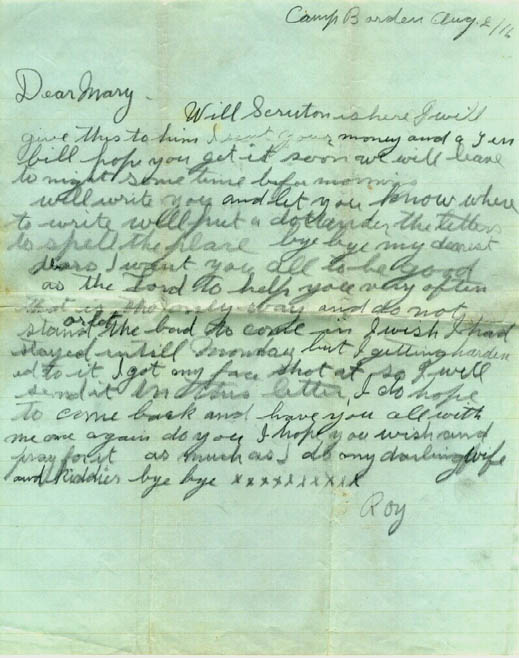 Camp Borden Aug. 2/16
Dear Mary -
Will Scruton is here I will
give this to him I sent your money and a ten
bill hope you get it soon we will leave
to night some time before morning
will write you and let you know where
to write will put a dot under the letters
to spell the place bye bye my dearest
dears, I want you all to be good
as the Lord to help you very often
that is the only way and do not
stand the bad to come in I wish I had
stayed intill Monday but I getting harden
ed to it, I got my face shot at so I will
send it in this letter, I do hope
to come back and have you all with
me once again do you I hope you wish and
pray for it as much as I do my darling wife
and Kiddies bye bye xxxxxxxxxx
Roy